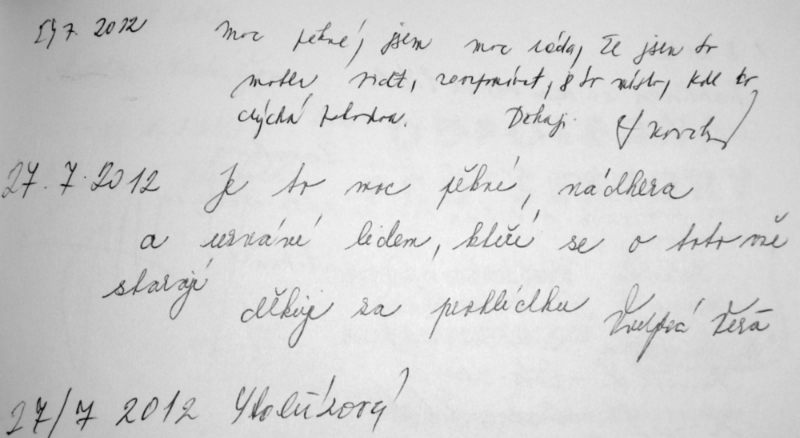 7. 2012 moc pěkné, jsem moc ráda, že jsem to
mohla vidět, to místo, kde to
dýchá Děkuji
27. 7. 2012 Je to moc pěkné, nádhera
a uznání lidem, kteří se o toto vše
starají
děkuji za prohlídku
27/7 2012